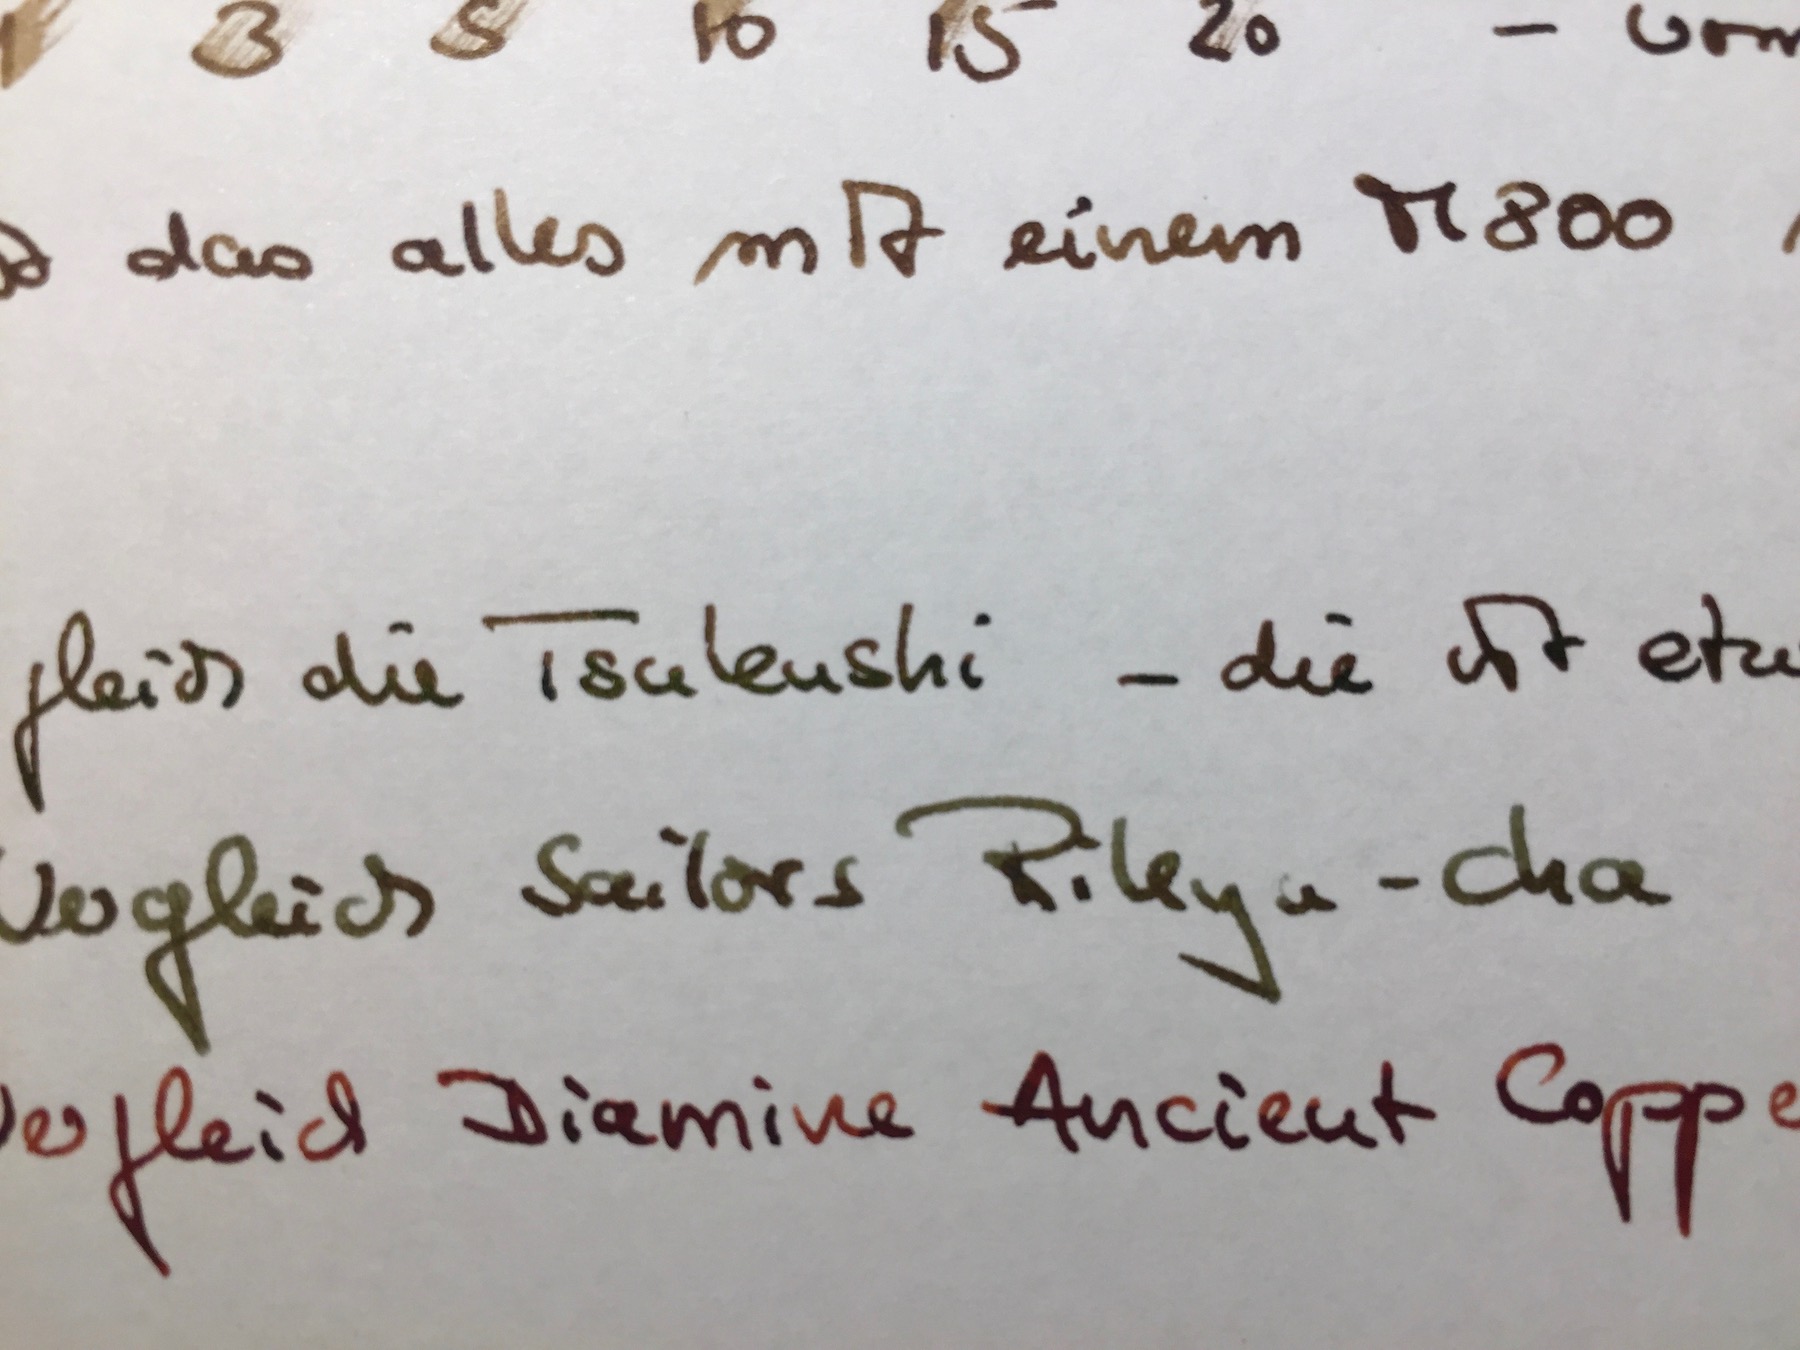 1 3 5 10 15 20 - vom
das alles mit einem M800
gleich die Tsukushi - die ist etw
Vergleich Sailors Rikyu-cha
Vergleich Diamine Ancient Coppe